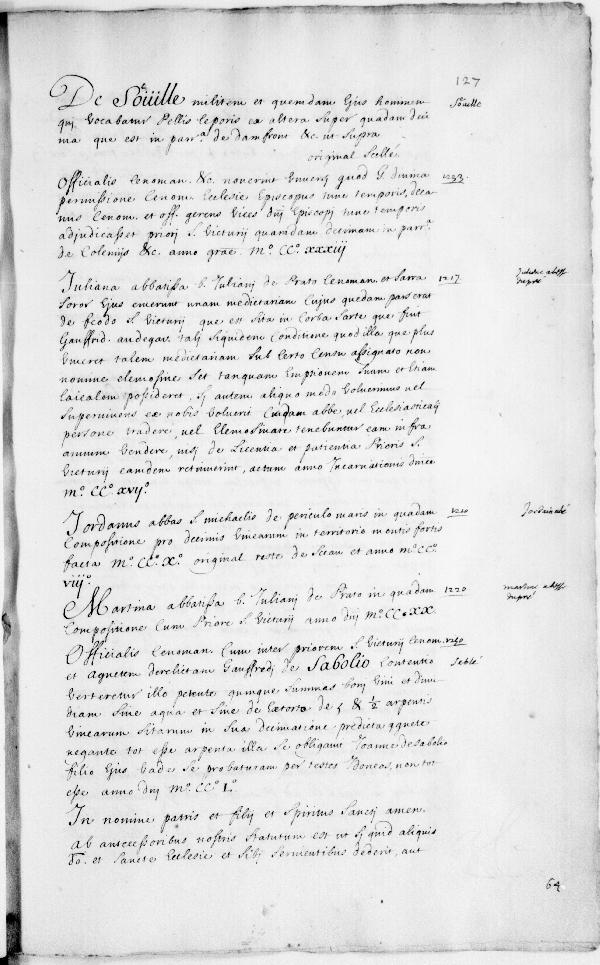 127
De Soüille militem et quemdam Ejus hominem Soüille
qui Vocabatur Pellis leporis ex altera super quadam deci
ma que est in parr.ª de damfront &c. ut supra
original Scellé.
Officialis Cenoman. &c. noverint Universi quod G. divina 1233.
permissione Cenom. Ecclesie Episcopus tunc temporis, deca
nus Cenom. et off. gerens Vices dnj Episcopj tunc temporis
adjudicasset priorj S. Victurij quamdam decimam in parr.ª
de Colenijs &c. anno grae. Mº. CCº. XXXiij
Juliana abbatissa b. Julianj de Prato Cenoman. et Sarra 1217.
Soror Ejus emerunt unam medietariam Cujus quedam pars erat
dupré
de feodo S. Victurij que est Sita in Corba Sarte que fuit
Gauffrid. andegavi talj Siquidem Conditione quod illa que plus
Viveret talem medietariam Sub Certo Censu assignato non
nomine elemosine Set tanquam Emptionem Suam et Etiam
laicalem possideret, Sj autem aliquo modo Voluerimus vel
Supervivens ex nobis Voluerit Cuidam abbe vel Ecclesiasticalj
persone tradere, vel Elemosinare tenebuntur eam infra
annum Vendere, nisj de Licentia et patientia Prioris S.
Victurij eamdem retinuerint, actum anno Incarnationis dnice
Mº. CCº. XVIJº.
Jordanus abbas S. michaelis de periculo maris in quadam 1210
Compositione pro decimis Vinearum in territorio montis fortis
facta Mº. CCº. Xº. original reste de Sceau et anno Mº. CCº.
VIIIº.
Martina abbatissa b. Julianj de Prato in quadam 1220 martine abbesse
Compositione Cum Priore S. Victurij anno dnj Mº. CC. XX. dupré
Officialis Cenoman. Cum inter priorem S. Victurij Cenom.
et agnetem derelictam Gauffredj de Sabolio Contentio Seblé
Verteretur illo petente quinque Summas bonj Vini et
Sine aqua et Sine de 5 & ½ arpentis
Vinearum Sitarum in Sua decimatione predicta agnete
negante tot esse arpenta illa Se obligavit Joanne de Sabolio
filio Ejus Vade Se probaturam per testes Idoneos, non tot
esse anno dnj Mº. CCº. Lº.
In nomine patris et filij et Spiritus Sancti amen.
Ab antecessoribus nostris Statutum est ut Sj quid aliquis
do. et Sancte Ecclesie et Sibj Servientibus dederit, aut
64